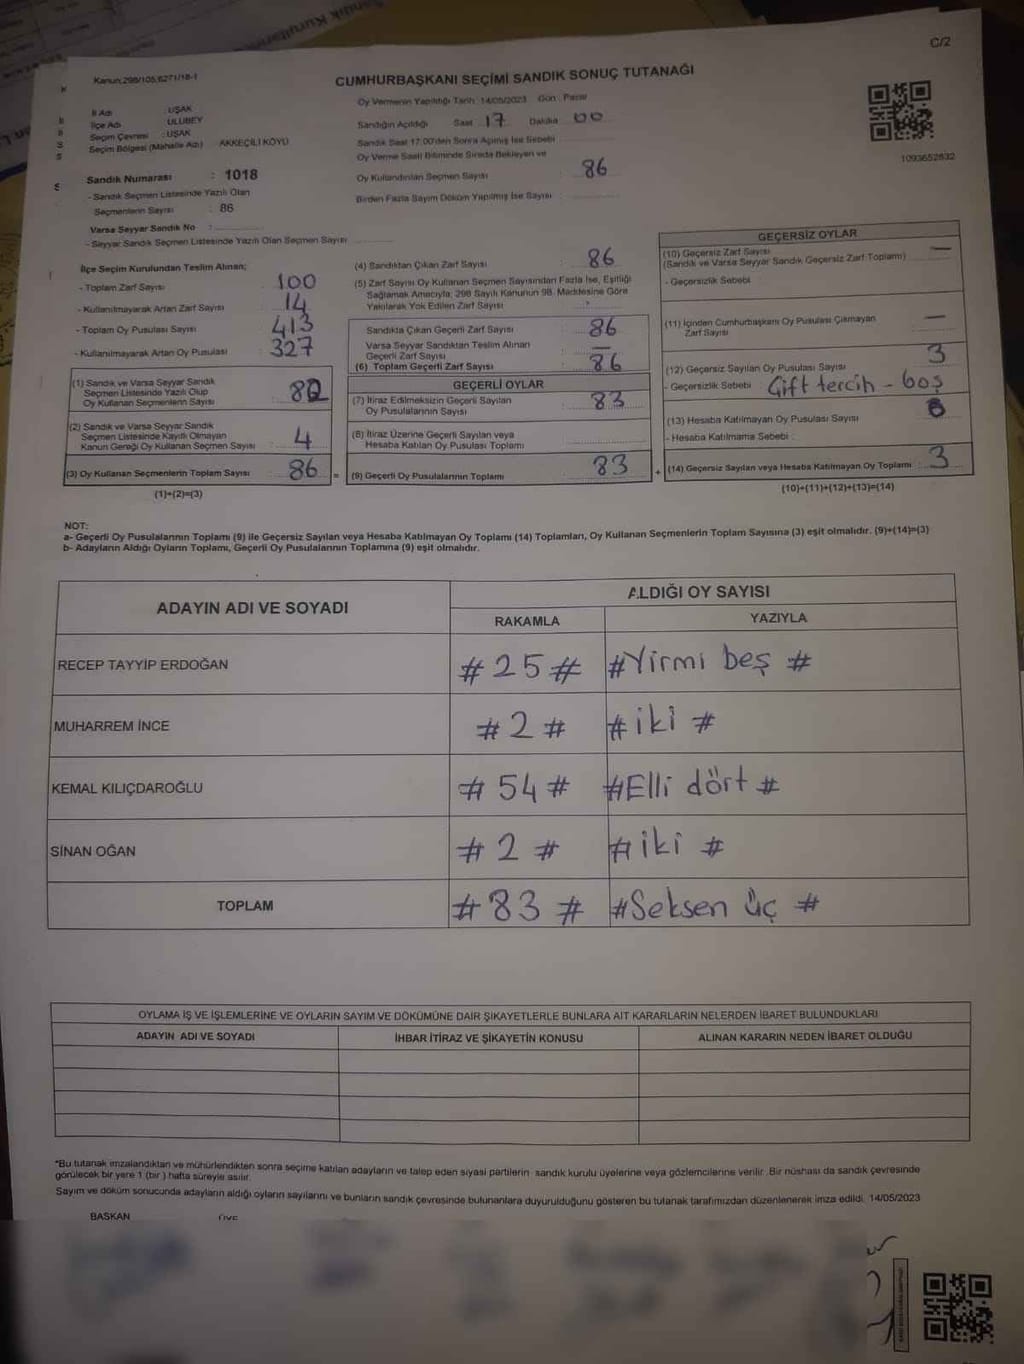 C/2
Kanun:298/105,6271/18-1
CUMHURBAŞKANI SEÇİMİ SANDIK SONUÇ TUTANAĞI
İl Adı : UŞAK
İlçe Adı : ULUBEY
Seçim Çevresi : UŞAK
Seçim Bölgesi (Mahalle Adı) AKKEÇİLİ KÖYÜ
Oy Vermenin Yapıldığı Tarih : 14/05/2023 Gün : Pazar
Sandığın Açıldığı Saat 17 Dakika 00
Sandık Saat 17:00'den Sonra Açılmış İse Sebebi
Oy Verme Saati Bitiminde Sırada Bekleyen ve
Oy Kullandırılan Seçmen Sayısı 86
Birden Fazla Sayım Döküm Yapılmış İse Sayısı
1093652832
Sandık Numarası : 1018
- Sandık Seçmen Listesinde Yazılı Olan
Seçmenlerin Sayısı : 86
Varsa Seyyar Sandık No :
- Seyyar Sandık Seçmen Listesinde Yazılı Olan Seçmen Sayısı
İlçe Seçim Kurulundan Teslim Alınan;
- Toplam Zarf Sayısı : 100
- Kullanılmayarak Artan Zarf Sayısı : 14
- Toplam Oy Pusulası Sayısı : 413
- Kullanılmayarak Artan Oy Pusulası : 327
(1) Sandık ve Varsa Seyyar Sandık
Seçmen Listesinde Yazılı Olup
Oy Kullanan Seçmenlerin Sayısı : 82
(2) Sandık ve Varsa Seyyar Sandık
Seçmen Listesinde Kayıtlı Olmayan
Kanun Gereği Oy Kullanan Seçmen Sayısı : 4
(3) Oy Kullanan Seçmenlerin Toplam Sayısı : 86
(1)+(2)=(3)
(4) Sandıktan Çıkan Zarf Sayısı : 86
(5) Zarf Sayısı Oy Kullanan Seçmen Sayısından Fazla İse, Eşitliği
Sağlamak Amacıyla; 298 Sayılı Kanunun 98. Maddesine Göre
Yakılarak Yok Edilen Zarf Sayısı
Sandıkta Çıkan Geçerli Zarf Sayısı : 86
Varsa Seyyar Sandıktan Teslim Alınan
Geçerli Zarf Sayısı : —
(6) Toplam Geçerli Zarf Sayısı : 86
GEÇERLİ OYLAR
(7) İtiraz Edilmeksizin Geçerli Sayılan
Oy Pusulalarının Sayısı : 83
(8) İtiraz Üzerine Geçerli Sayılan veya
Hesaba Katılan Oy Pusulası Toplamı
= (9) Geçerli Oy Pusulalarının Toplamı : 83
GEÇERSİZ OYLAR
(10) Geçersiz Zarf Sayısı —
(Sandık ve Varsa Seyyar Sandık Geçersiz Zarf Toplamı)
- Geçersizlik Sebebi
(11) İçinden Cumhurbaşkanı Oy Pusulası Çıkmayan
Zarf Sayısı —
(12) Geçersiz Sayılan Oy Pusulası Sayısı 3
- Geçersizlik Sebebi Çift tercih - boş
(13) Hesaba Katılmayan Oy Pusulası Sayısı
- Hesaba Katılmama Sebebi :
+ (14) Geçersiz Sayılan veya Hesaba Katılmayan Oy Toplamı : 3
(10)+(11)+(12)+(13)=(14)
NOT:
a- Geçerli Oy Pusulalarının Toplamı (9) ile Geçersiz Sayılan veya Hesaba Katılmayan Oy Toplamı (14) Toplamları, Oy Kullanan Seçmenlerin Toplam Sayısına (3) eşit olmalıdır. (9)+(14)=(3)
b- Adayların Aldığı Oyların Toplamı, Geçerli Oy Pusulalarının Toplamına (9) eşit olmalıdır.
ADAYIN ADI VE SOYADI ALDIĞI OY SAYISI
RAKAMLA YAZIYLA
RECEP TAYYİP ERDOĞAN #25# #Yirmi beş#
MUHARREM İNCE #2# #iki#
KEMAL KILIÇDAROĞLU #54# #Elli dört#
SİNAN OĞAN #2# #iki#
TOPLAM #83# #Seksen üç#
OYLAMA İŞ VE İŞLEMLERİNE VE OYLARIN SAYIM VE DÖKÜMÜNE DAİR ŞİKAYETLERLE BUNLARA AİT KARARLARIN NELERDEN İBARET BULUNDUKLARI
ADAYIN ADI VE SOYADI İHBAR İTİRAZ VE ŞİKAYETİN KONUSU ALINAN KARARIN NEDEN İBARET OLDUĞU
*Bu tutanak imzalandıktan ve mühürlendikten sonra seçime katılan adayların ve talep eden siyasi partilerin sandık kurulu üyelerine veya gözlemcilerine verilir. Bir nüshası da sandık çevresinde
görülecek bir yere 1 (bir) hafta süreyle asılır.
Sayım ve döküm sonucunda adayların aldığı oyların sayılarını ve bunların sandık çevresinde bulunanlara duyurulduğunu gösteren bu tutanak tarafımızdan düzenlenerek imza edildi. 14/05/2023
BAŞKAN ÜYE